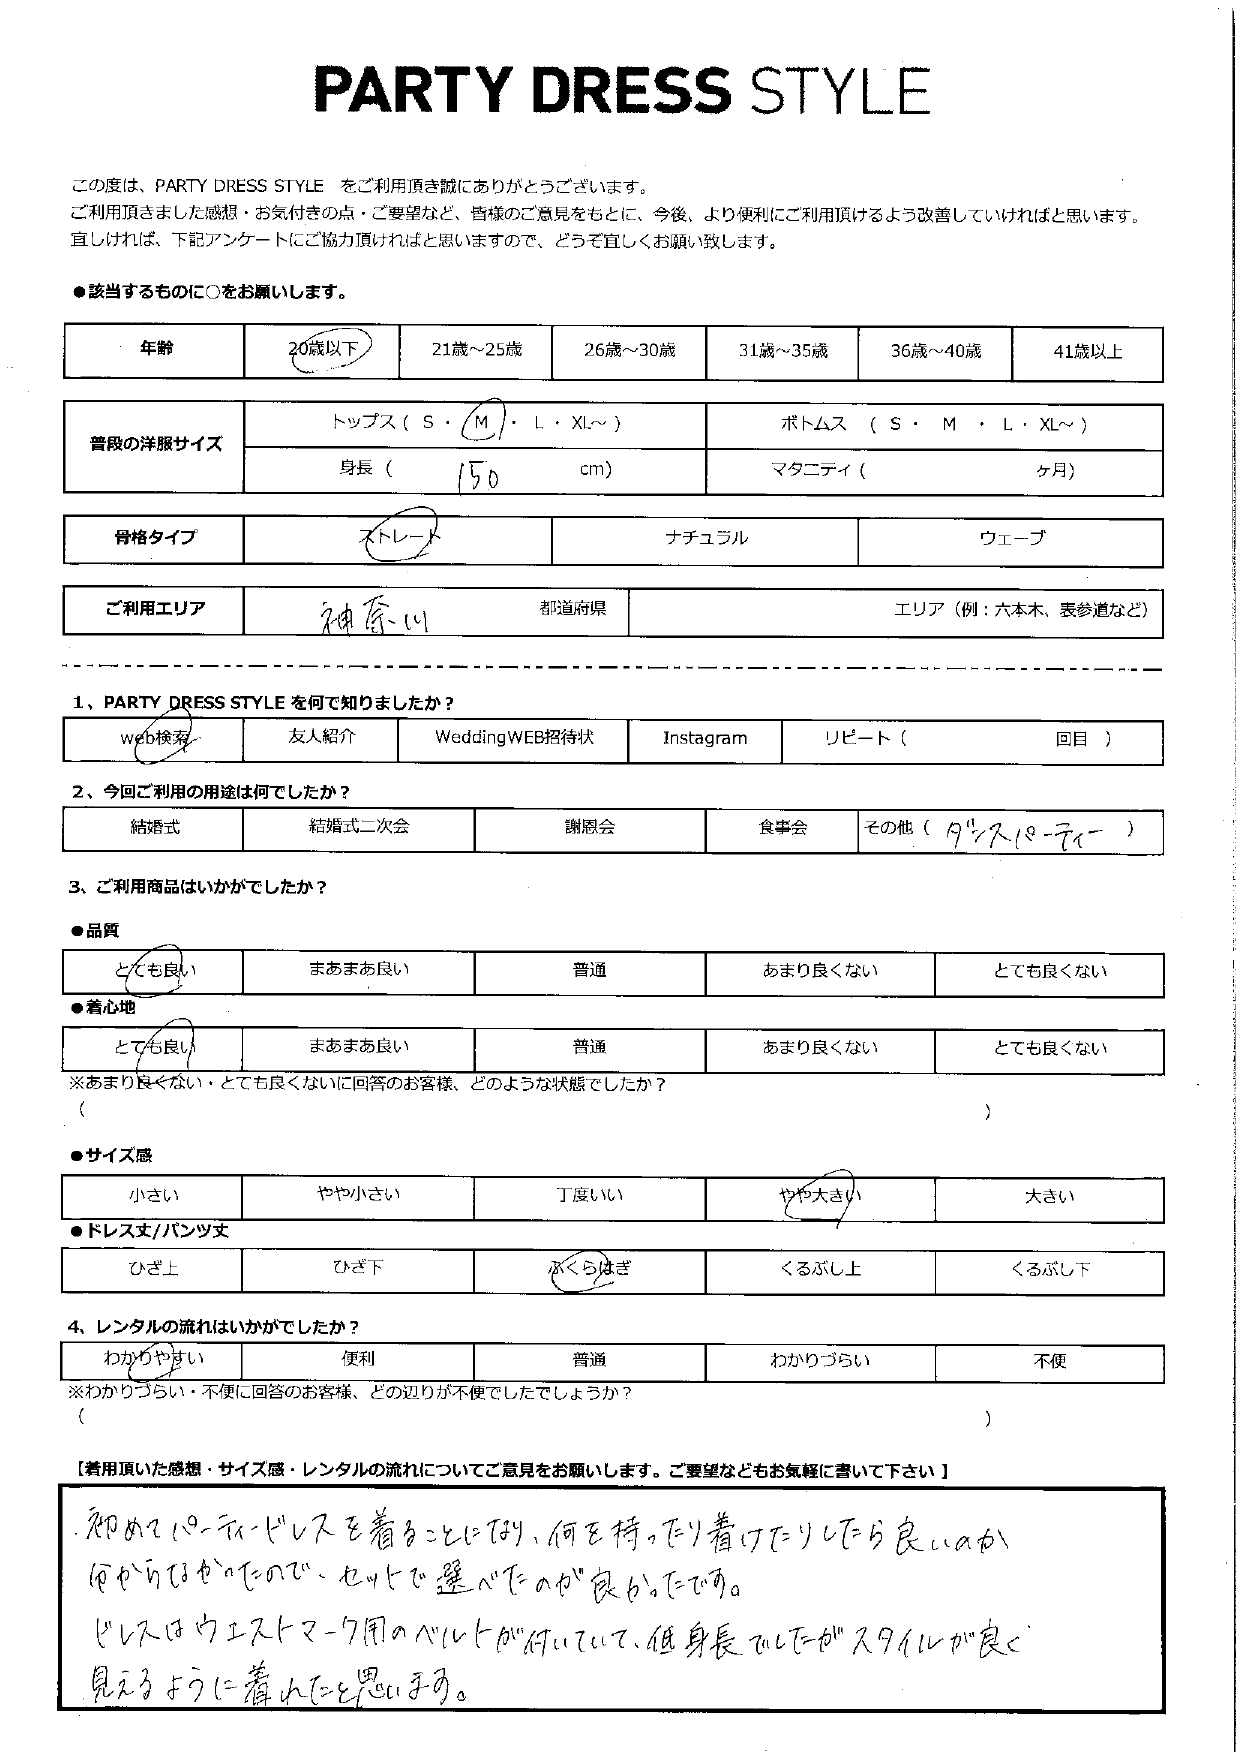 PARTY DRESS STYLE
この度は、PARTY DRESS STYLE をご利用頂き誠にありがとうございます。
ご利用頂きました感想・お気付きの点・ご要望など、皆様のご意見をもとに、今後、より便利にご利用頂けるよう改善していければと思います。
宜しければ、下記アンケートにご協力頂ければと思いますので、どうぞ宜しくお願い致します。
●該当するものに○をお願いします。
年齢 20歳以下 21歳～25歳 26歳～30歳 31歳～35歳 36歳～40歳 41歳以上
普段の洋服サイズ
トップス ( S ・ M ・ L ・ XL～ ) ボトムス ( S ・ M ・ L ・ XL～ )
身長 ( 150 cm) マタニティ ( ヶ月)
骨格タイプ ストレート ナチュラル ウェーブ
ご利用エリア 神奈川 都道府県 エリア（例：六本木、表参道など）
1、PARTY DRESS STYLE を何で知りましたか？
web検索 友人紹介 WeddingWEB招待状 Instagram リピート ( 回目 )
2、今回ご利用の用途は何でしたか？
結婚式 結婚式二次会 謝恩会 食事会 その他 ( ダンスパーティー )
3、ご利用商品はいかがでしたか？
●品質
とても良い まあまあ良い 普通 あまり良くない とても良くない
●着心地
とても良い まあまあ良い 普通 あまり良くない とても良くない
※あまり良くない・とても良くないに回答のお客様、どのような状態でしたか？
( )
●サイズ感
小さい やや小さい 丁度いい やや大きい 大きい
●ドレス丈/パンツ丈
ひざ上 ひざ下 ふくらはぎ くるぶし上 くるぶし下
4、レンタルの流れはいかがでしたか？
わかりやすい 便利 普通 わかりづらい 不便
※わかりづらい・不便に回答のお客様、どの辺りが不便でしたでしょうか？
( )
【着用頂いた感想・サイズ感・レンタルの流れについてご意見をお願いします。ご要望などもお気軽に書いて下さい】
初めてパーティードレスを着ることになり、何を持ったり着けたりしたら良いのか
何からなかったので、セットで選べたのが良かったです。
ドレスはウエストマーク用のベルトが付いていて、低身長でしたがスタイルが良く
見えるように着れたと思います。